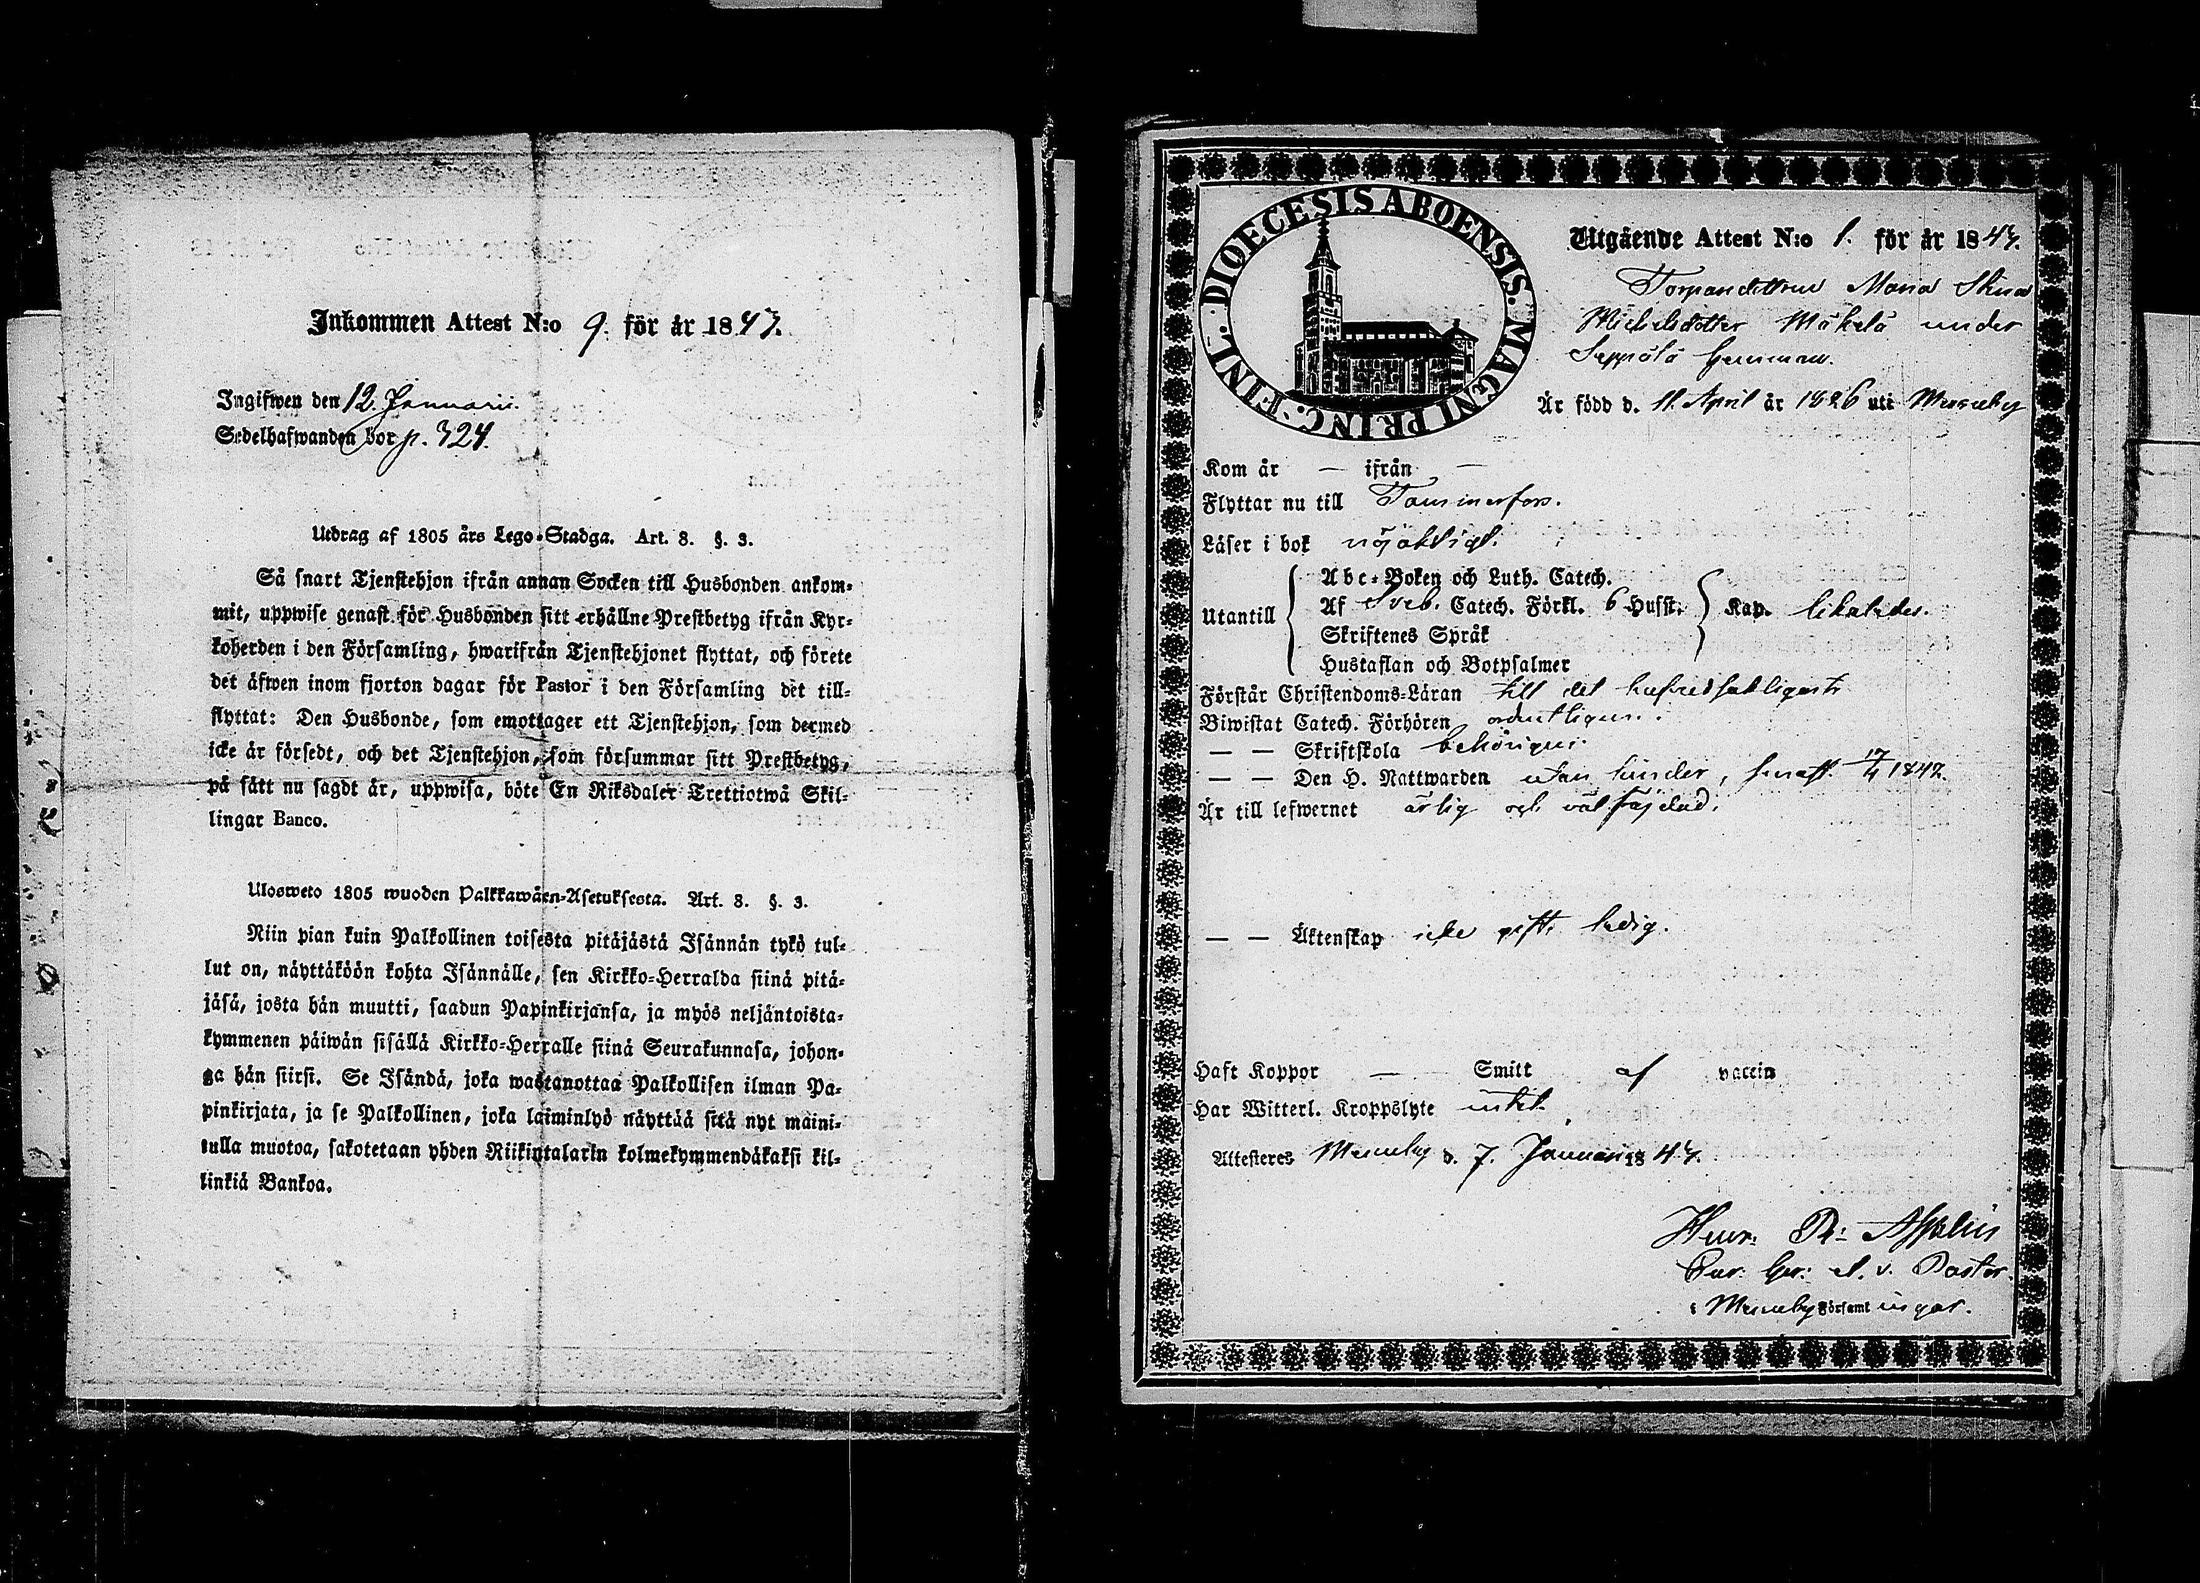 Inkommen Attest N:o 9. för år 1847.
Ingifwen den 12. Januarii.
Sedelhafwanden bor p. 324.
Utdrag af 1805 års Lego-Stadga. Art. 8. §. 3.
Så snart Tjenstehjon ifrån annan Socken till Husbonden ankom-
mit, uppwise genast för Husbonden sitt erhållne Prestbetyg ifrån Kyr-
koherden i den Församling, hwarifrån Tjenstehjonet flyttat, och förete
det äfwen inom fjorton dagar för Pastor i den Församling det till-
flyttat: Den Husbonde, som emottager ett Tjenstehjon, som dermed
icke är försedt, och det Tjenstehjon, som försummar sitt Prestbetyg,
på sätt nu sagdt är, uppwisa, böte En Riksdaler Trettiotwå Skil-
lingar Banco.
Ulosweto 1805 wuoden Palkkawäen-Asetuksesta. Art. 8. §. 3.
Niin pian kuin Palkollinen toisesta pitäjästä Isännän tykö tul-
lut on, näyttäköön kohta Isännälle, sen Kirkko-Herralda siinä pitä-
jäsä, josta hän muutti, saadun Papinkirjansa, ja myös neljäntoista-
kymmenen päiwän sisällä Kirkko-Herralle siinä Seurakunnasa, johon-
ga hän siirsi. Se Isändä, joka wastanottaa Palkollisen ilman Pa-
pinkirjata, ja se Palkollinen, joka laiminlyö näyttää sitä nyt maini-
tulla muotoa, sakotetaan yhden Riikintalarin kolmekymmendäkaksi kil-
linkiä Bankoa.
DIOECESIS ABOENSIS. MAGNI PRINC. FINL.
Utgående Attest N:o 1. för år 1847.
Torparedottren Maria Stina
Michelsdotter Mäkelä under
Seppälä hemman.
Är född d. 11. April år 1826 uti Messuby
Kom år — ifrån —
Flyttar nu till Tammerfors.
Läser i bok nöjaktigt.
Abc-Boken och Luth. Catech.
Utantill Af Sveb. Catech. Förkl. 6 Hufst. Kap. likaledes.
Skriftenes Språk
Hustaflan och Botpsalmer
Förstår Christendoms-Läran till det hufvudsakligaste
Biwistat Catech. Förhören ordentligen.
— — Skriftskola behörigen.
— — Den H. Nattwarden utan hinder, senast
Är till lefwernet ärlig och väl fräjdad.
— — Äktenskap icke gift, ledig.
Haft Koppor — Smitt af vaccin
Har Witterl. Kroppslyte intet.
Attesteres Messuby d. 7. Januarii 1847.
Henr: R: Appelin
v. Pastor.
i Messuby Församlingar.